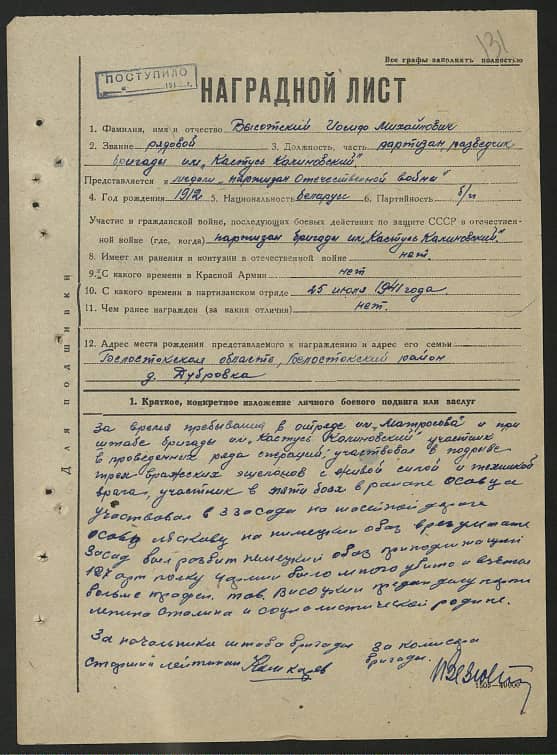 131
Все графы заполнять полностью
ПОСТУПИЛО
НАГРАДНОЙ ЛИСТ
1. Фамилия, имя и отчество Высотский Иосиф Михайлович
2. Звание рядовой 3. Должность, часть партизан, разведчик
бригады им. „Кастусь Калиновский"
Представляется к медали „партизан Отечественной войны"
4. Год рождения 1912 5. Национальность беларус 6. Партийность б/п
Участие в гражданской войне, последующих боевых действиях по защите СССР в отечествен-
ной войне (где, когда) партизан бригады им. Кастусь Калиновский".
8. Имеет ли ранения и контузии в отечественной войне нет.
9. С какого времени в Красной Армии нет
10. С какого времени в партизанском отряде 25 июля 1941 года.
11. Чем ранее награжден (за какия отличия) нет.
12. Адрес места рождения представляемого к награждению и адрес его семьи
Белостокская область, Белостокский район
д. Дубровка
Для подшивки
1. Краткое, конкретное изложение личного боевого подвига или заслуг
За время пребывания в отряде им. „Матросова" и при
штабе бригады им. „Кастусь Калиновский" участник
в проведенных ряда операций; участвовал в подрыве
трех вражеских эшелонов с живой силой и техникой
врага, участник в пяти боях в районе Осовца
участвовал в 3 засада на шосейной дороге
Осовец на немецкий обоз в результате
засад был розбит немецкий обоз принодлижащей
127 арт полку Армии было много убито и взято
больше трофеи. тов. Высоцкий предан делу партии
Ленина Сталина и социалистической родине.
За начальника штаба бригады за комисара
Старший лейтенант бригады
1505—10000